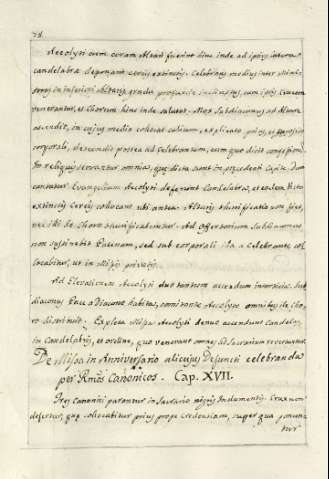 78.
Accolyti cum coram Altari fuerint hinc inde ad ipsius latera
candelabra deponant cereis extinctis. Celebrans medius inter Mini-
stros in inferiori Altaris gradu profunde inclinatus, cum ipsis Crucem
veneratur, et Chorum hinc inde salutat. Mox Subdiaconus ad Altare
ascendit, in cujus media collocat calicem, explicato prius, ex
corporali, descendit postea ad Celebrantem, cum quo dicit confessionem.
In reliquis servantur omnia, quæ dicta sunt in præcedenti Capite. Dum
cantatur Evangelium Accolyti deferunt Candelabra, et eadem
extinctis Cereis collocant ubi antea. Altaris thurificatio non fiet,
nec ibi de Choro thurificabuntur. Ad Offertorium Subdiaconus
non sustinebit Patenam, sed sub corporali a Celebrante col-
locabitur, ut in Missis privatis.
Ad Elevationem Accolyti duo tantum accendunt intorticia. Sub-
diaconus Pace a Diacono habita, comitante Accolyto omnibus de Cho-
ro distribuit. Expleta Missa Accolyti denuo accendunt Candelas
in Candelabris, et ordine, quo venerant omnes ad Sacrarium revertuntur.
De Missa in Anniversario alicujus Defuncti celebranda
per Rmos Canonicos. Cap. XVII.
Tres Canonici parantur in Sacrario nigris Indumentis. Crux non
defertur, quæ collocabitur prius prope Credentiam, super qua ponun-
tur